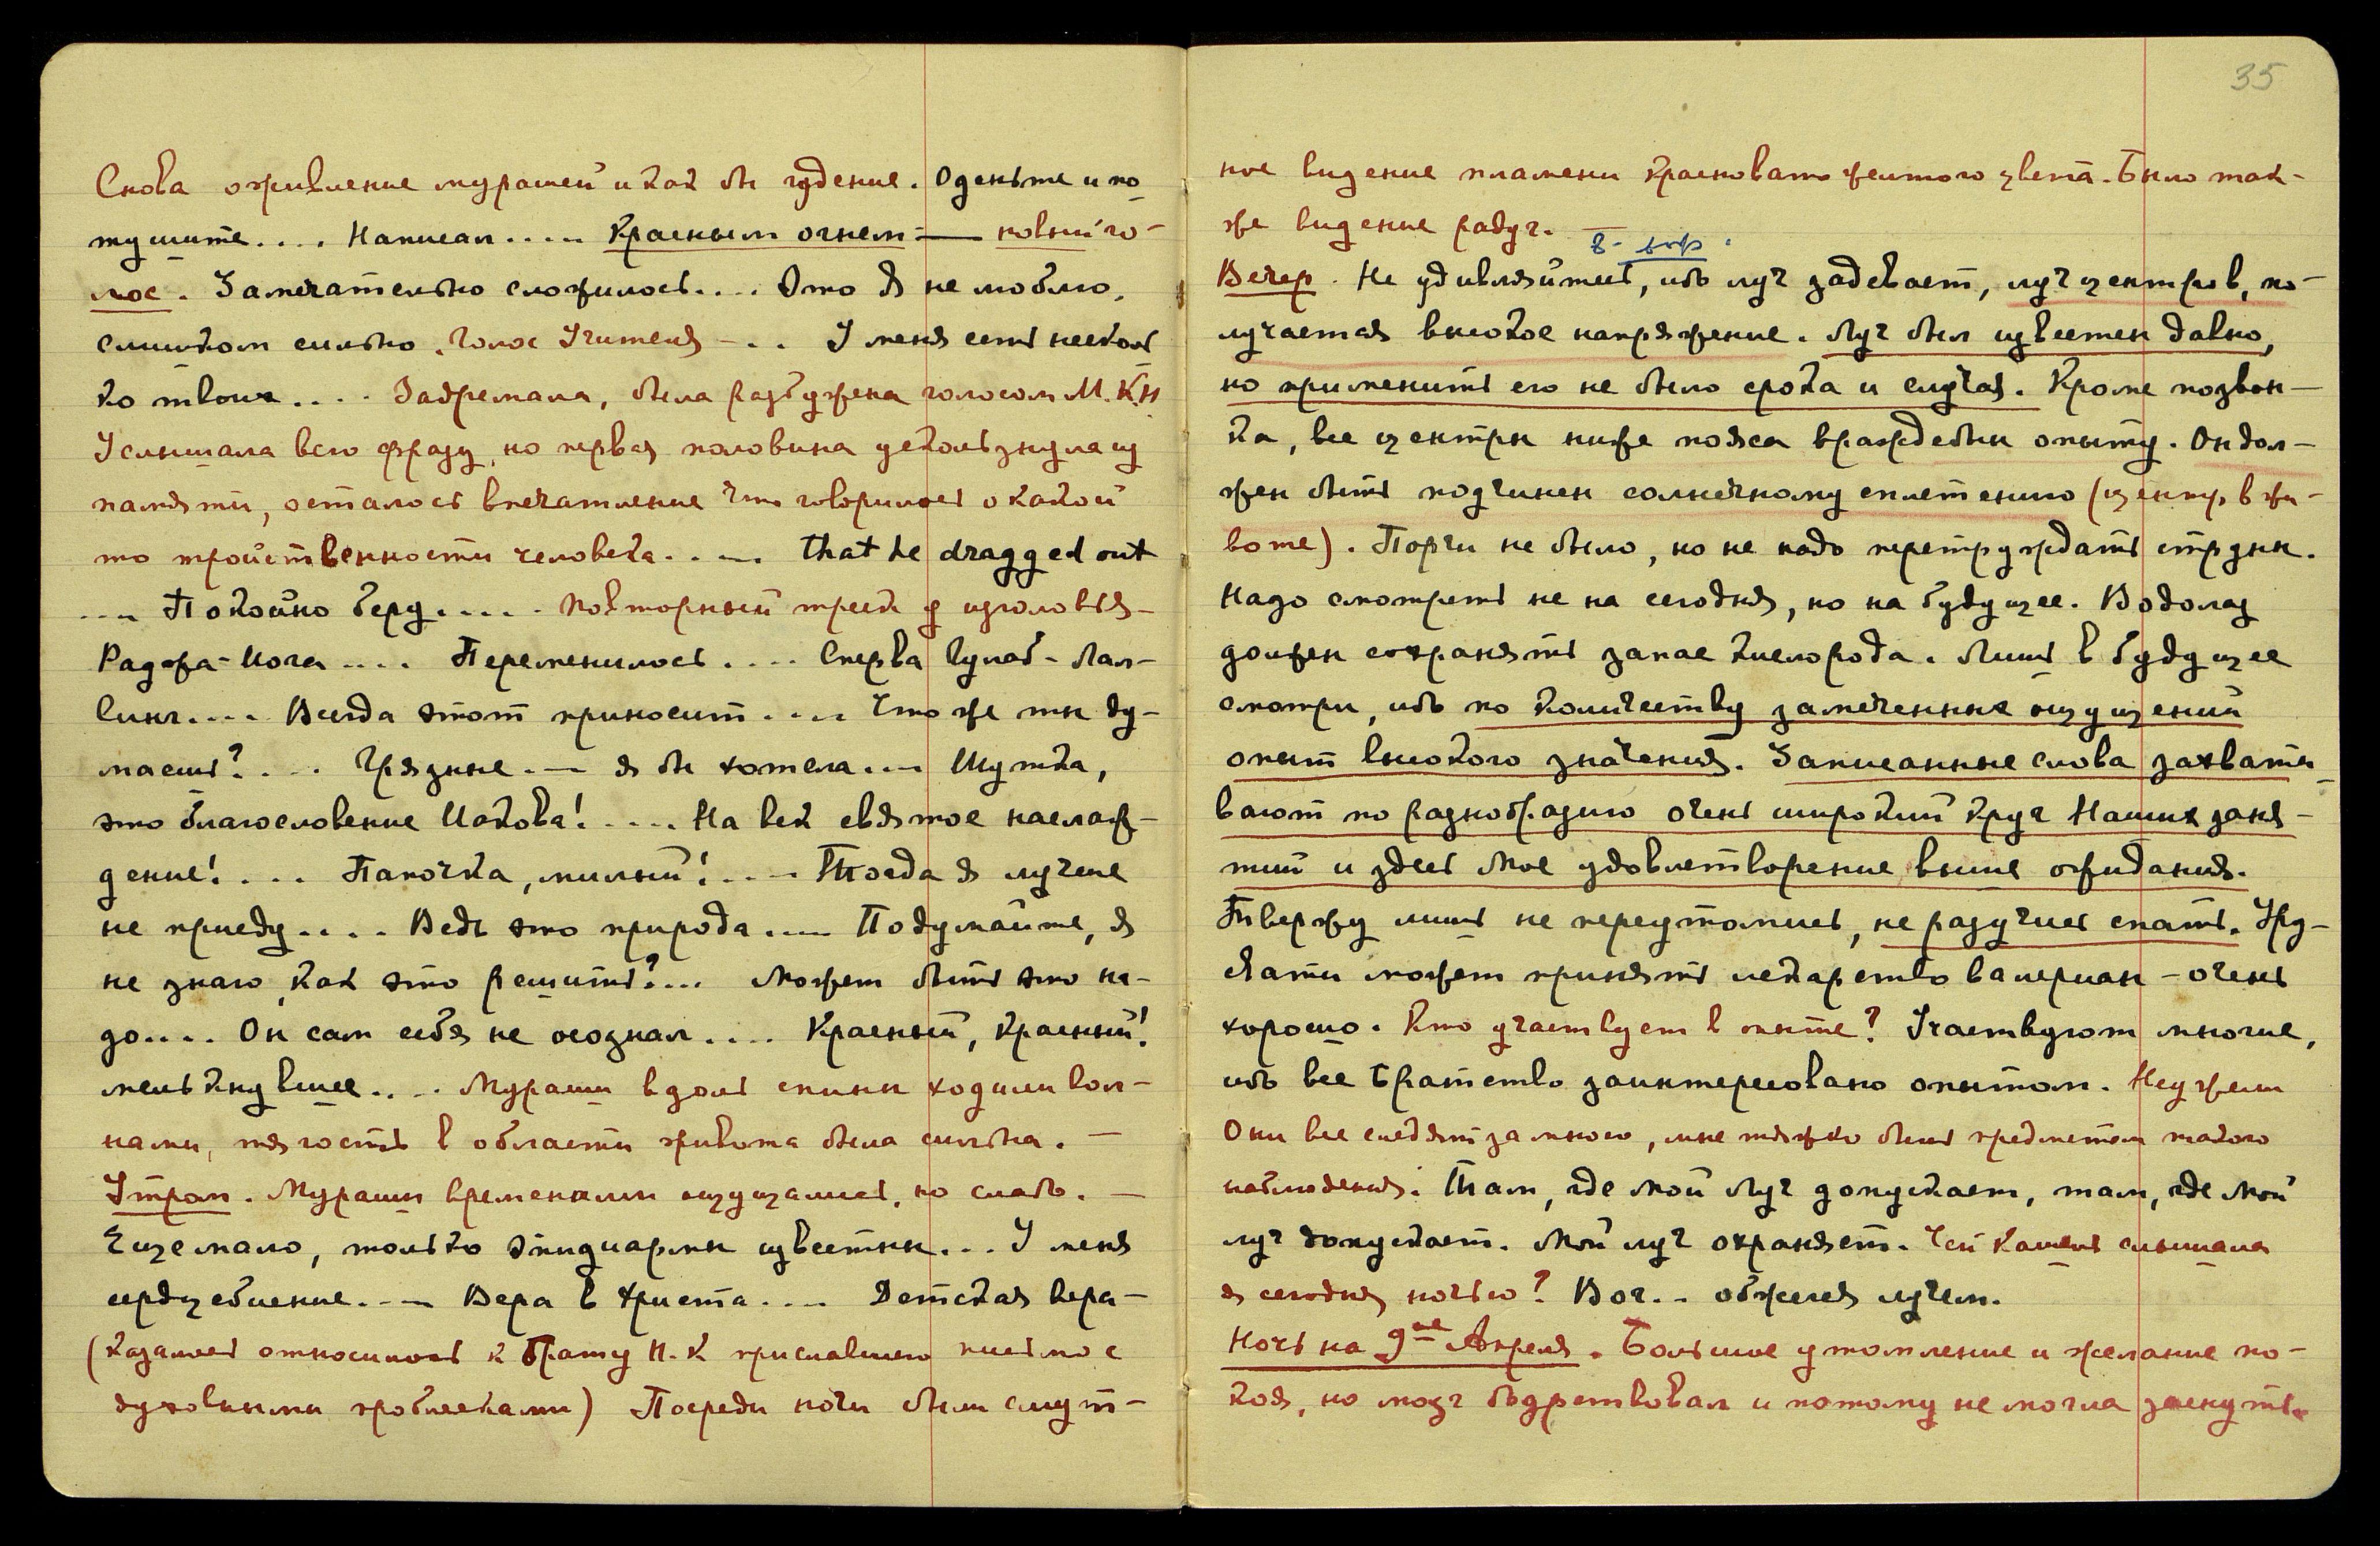 Снова оживление мурашей и как бы гудение. Оденьте и по
тушите.... Написал..... Красным огнем — новый го-
лос. Замечательно сложилось.... Это Я не люблю,
слишком сильно, голос Учителя -.. У меня есть несколь
ко твоих.... Задремала, была разбужена голосом М. К.Н
Услышала всю фразу, но первая половина ускользнула из
памяти, осталось впечатление что говорилось о какой
то тройственности человека..... that he dragged out
.... Покойно беру..... Повторный треск у изголовья-
Раджа-Йога.... Переменилось.... Сперва Гулаб-Лал-
Синг.... Всегда этот приносит.... Что же ты ду-
маешь?.... Грязные.... я бы хотела.... Шутка,
это благословение Иакова!..... На век святое наслаж-
дение!.... Папочка, милый!.... Тогда я лучше
не приеду.... Ведь это природа.... Подумайте, я
не знаю, как это решить?.... Может быть это на-
до.... Он сам себя не осознал.... Красный, красный!
мелькнувшее.... Мураши вдоль спины ходили вол-
нами, тягость в области живота была сильна. —
Утром. Мураши временами ощущались, но слабо. —
Еще мало, только эпидиармы известны... У меня
сердцебиение.... Вера в Христа.... Детская вера-
(казалось относилось к брату Н.К приславшего письмо с
духовными проблесками) Посреди ночи были смут-
35
ное видение пламени красновато желтого цвета. Было так-
же видение радуг. —
8-
Вечер. Не удивляйтесь, ибо луч задевает, луч центров, по-
лучается высокое напряжение. Луч был известен давно,
но применить его не было срока и случая. Кроме позвон-
ка, все центры ниже пояса враждебны опыту. Он дол-
жен быть подчинен солнечному сплетению (центр в жи-
воте). Порчи не было, но не надо перетруждать струны.
Надо смотреть не на сегодня, но на будущее. Водолаз
должен сохранять запас кислорода. Лишь в будущее
смотри, ибо по количеству замеченных ощущений
опыт высокого значения. Записанные слова захваты-
вают по разнообразию очень широкий круг Наших заня-
тий и здесь Мое удовлетворение выше ожидания.
Твержу лишь не переутомись, не разучись спать. Уру-
свати может принять лекарство валериан - очень
хорошо. Кто участвует в опыте? Участвуют многие,
ибо все Братство заинтересовано опытом. Неужели
Они все следят за мною, мне тяжко быть предметом такого
наблюдения. Там, где мой Луч допускает, там, где Мой
луч допускает. Мой луч охраняет. Чей кашель слышала
я сегодня ночью? Вог.. обжегся лучем.
Ночь на 9ое Апреля. Большое утомление и желание по-
коя, но мозг бодрствовал и потому не могла заснуть.